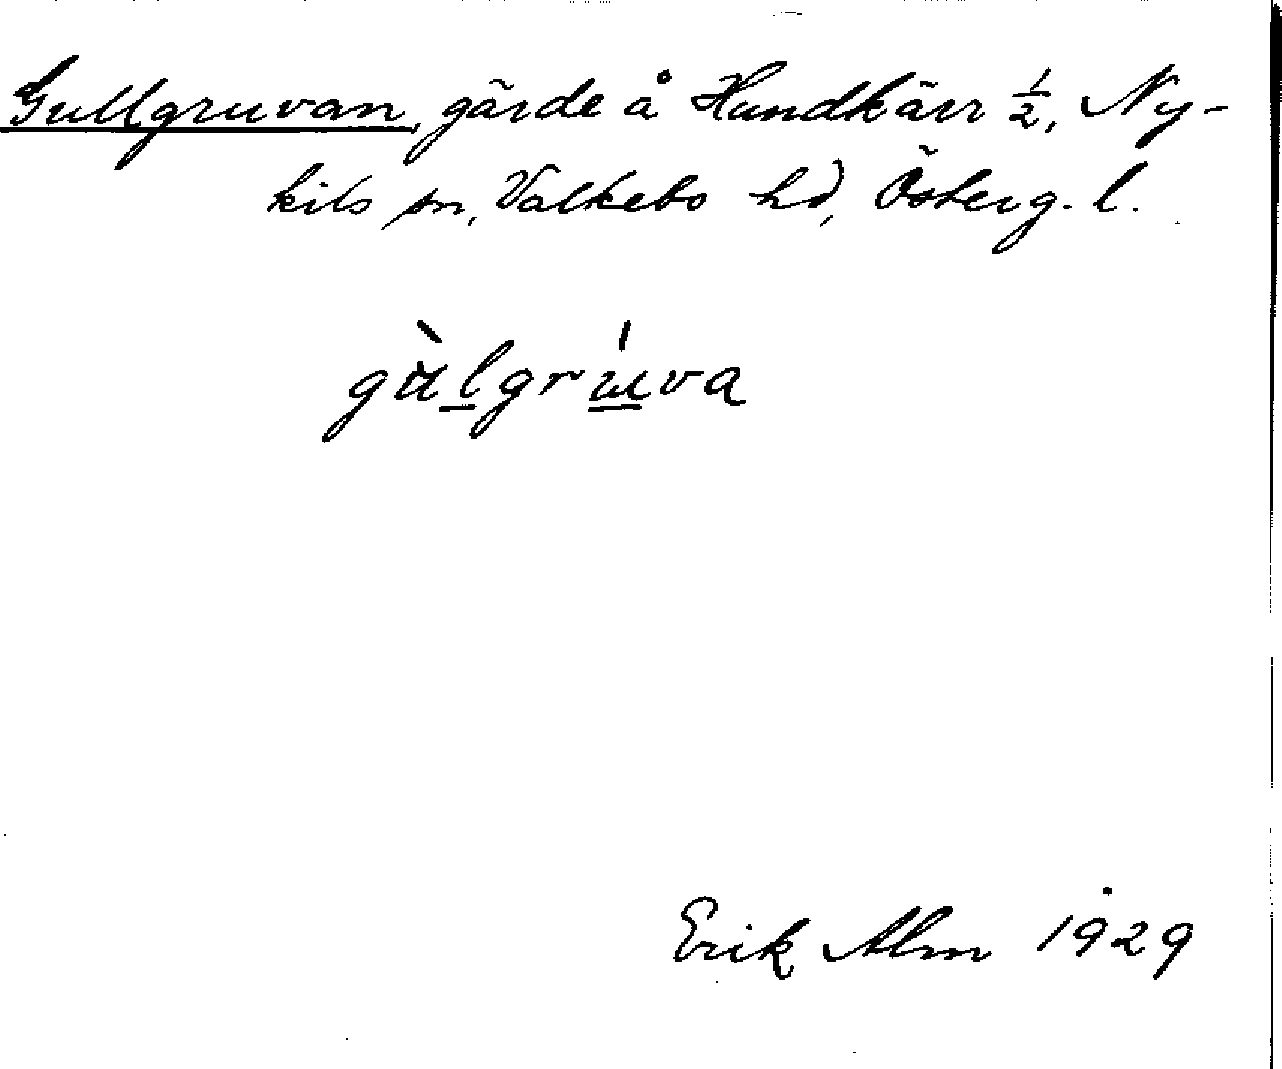 Gullgruvan, gärde å Hundkärr 1/2, Ny-
kils sn, Valkebo hd, Österg. l.
gùlgrúva
Erik Alm 1929